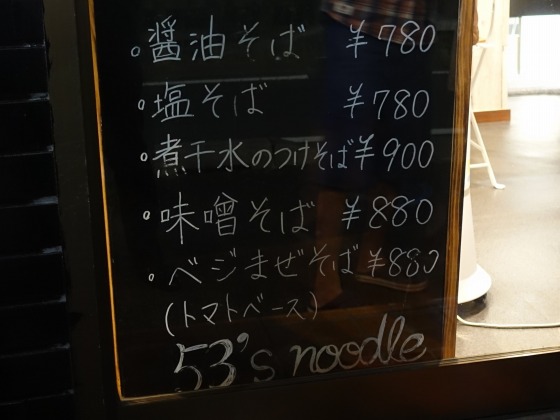 。醤油そば ¥780
。塩そば ¥780
。煮干水のつけそば ¥900
。味噌そば ¥880
。ベジまぜそば ¥880
(トマトベース)
53's noodle